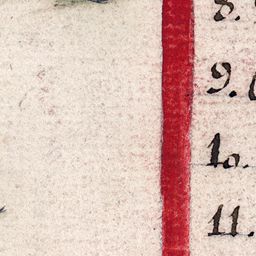 8.
9.
10.
11.